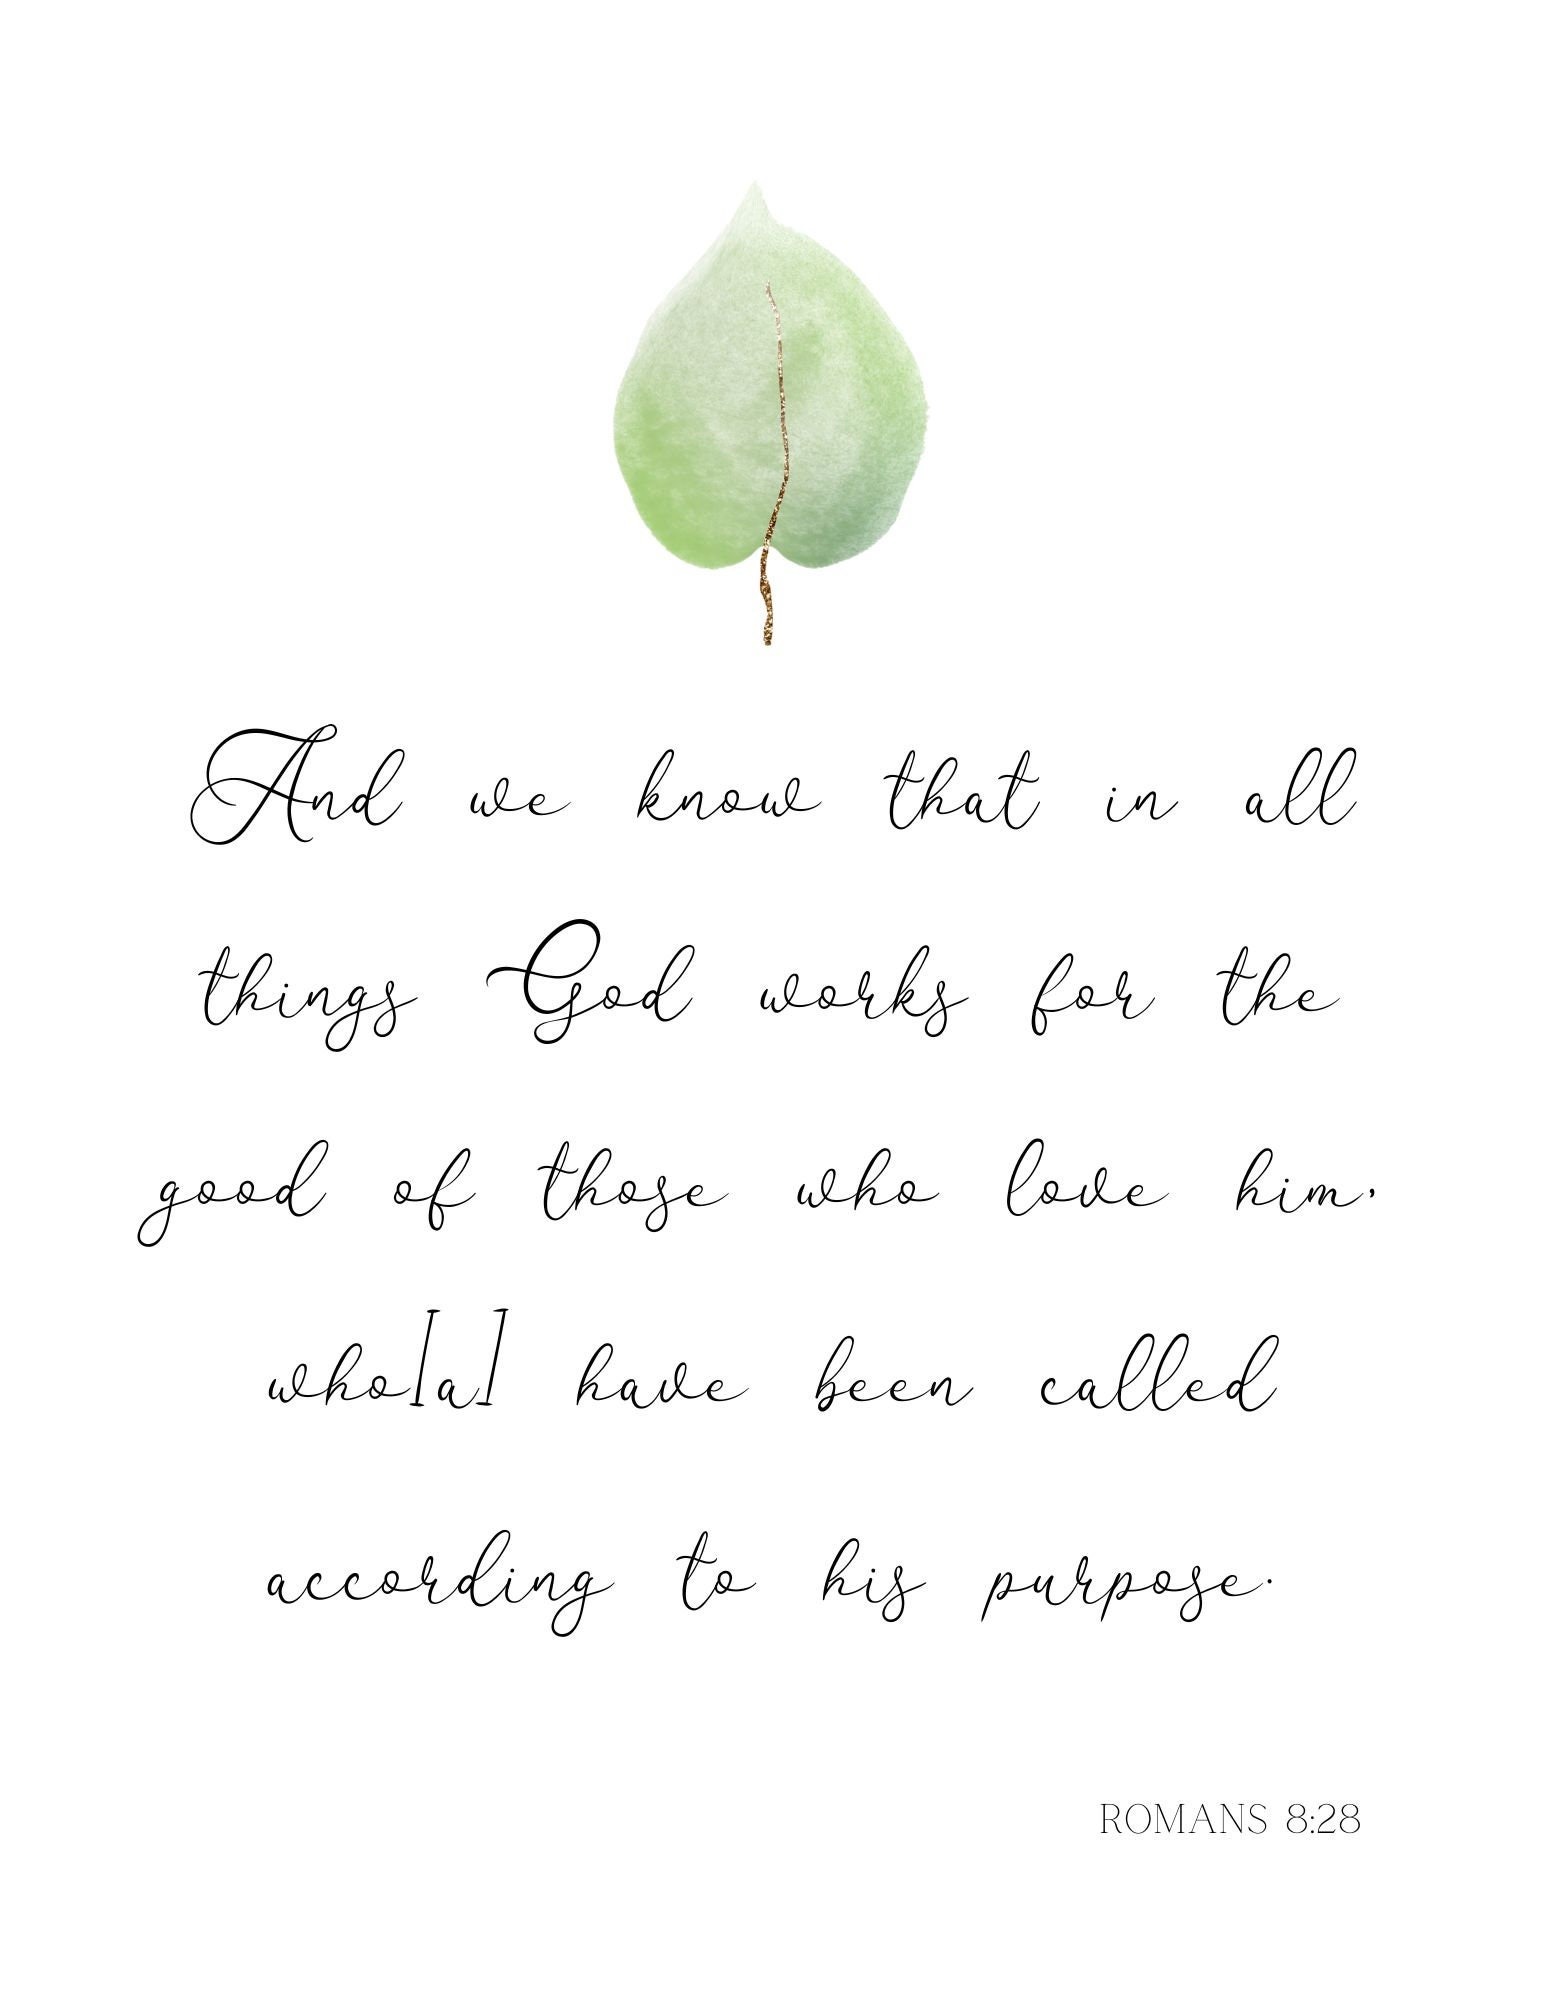 And we know that in all
things God works for the
good of those who love him,
who[a] have been called
according to his purpose.
ROMANS 8:28